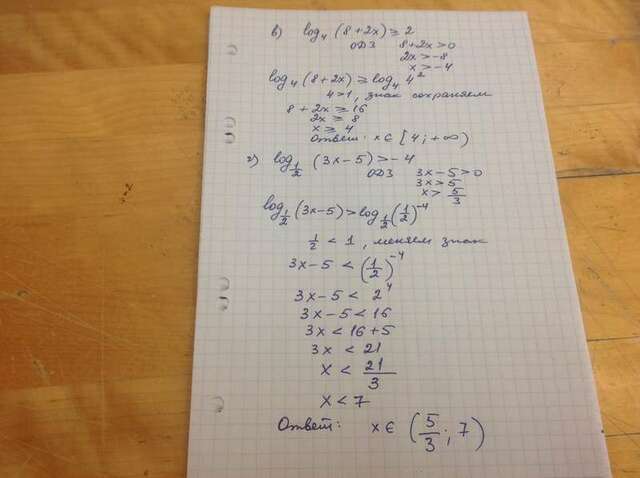 в) log₄ (8+2x) ≥ 2
ОДЗ 8+2x>0
2x>-8
x>-4
log₄ (8+2x) ≥ log₄ 4²
4>1, знак сохраняем
8+2x ≥ 16
2x ≥ 8
x ≥ 4
Ответ: x ∈ [4; +∞)
г) log_{1/2} (3x-5) > -4
ОДЗ 3x-5>0
3x>5
x> 5/3
log_{1/2} (3x-5) > log_{1/2} (1/2)⁻⁴
1/2 < 1, меняем знак
3x-5 < (1/2)⁻⁴
3x-5 < 2⁴
3x-5 < 16
3x < 16+5
3x < 21
x < 21/3
x < 7
Ответ: x ∈ (5/3; 7)